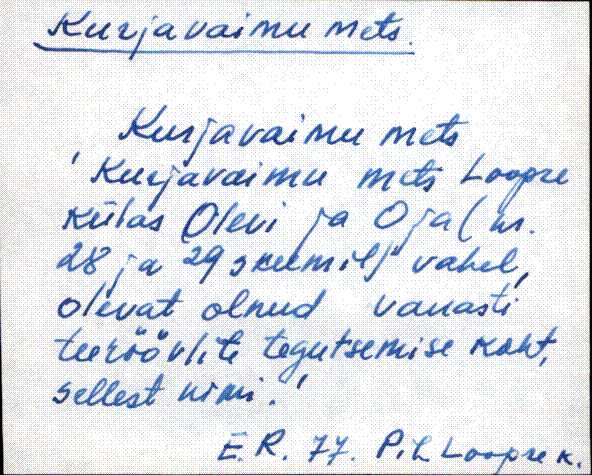 Kurjavaimu mets.
Kurjavaimu mets
'Kurjavaimu mets Loopre
külas Olevi ja Oja (nr.
28 ja 29 skeemil) vahel,
olevat olnud vanasti
teeröövlite tegutsemise koht,
sellest nimi.'
E.R. 77. Pil. Loopre k.